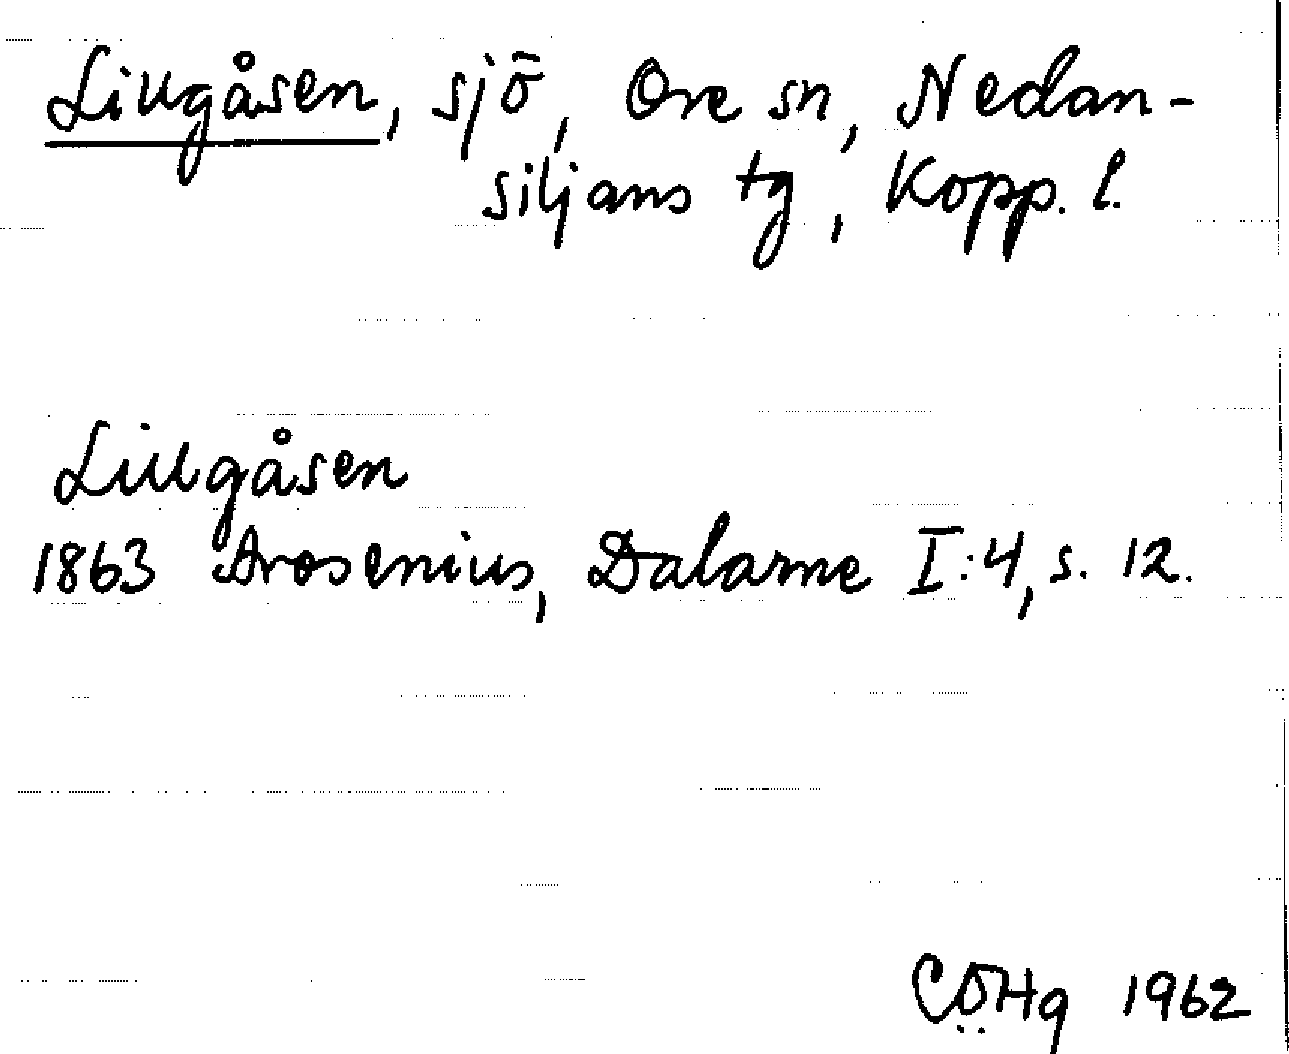 Lillgåsen, sjö, Ore sn, Nedan-
siljans tg, Kopp. l.
Lillgåsen
1863 Arosenius, Dalarne I:4, s. 12.
CÖHg 1962